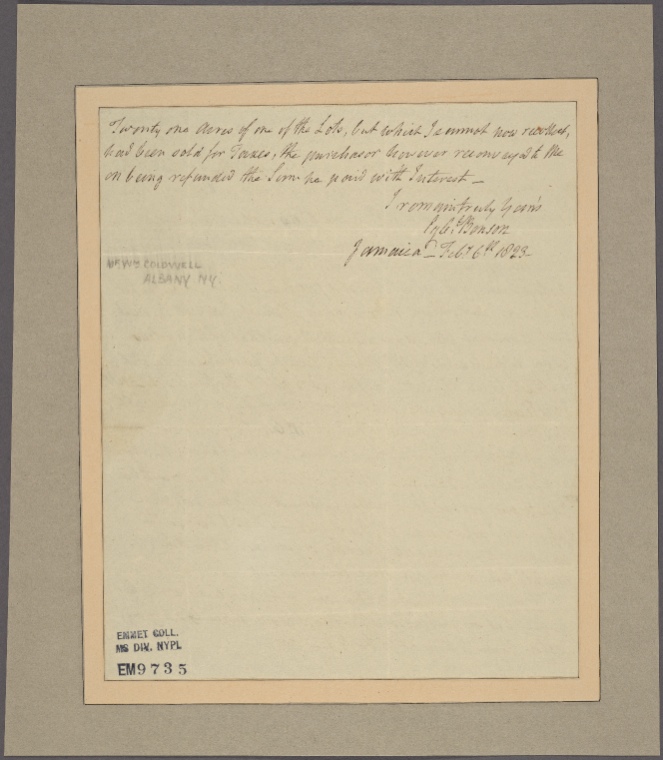 Twenty one Acres of one of the Lots, but which I cannot now recollect,
had been sold for Taxes, the purchasor however reconveyed to me
on being refunded the Sum he paid with Interest —
I remain truly Yours
Egbt Benson
Jamaica — Feby 6th 1823 —
Mr Wm COLDWELL
ALBANY NY.
EMMET COLL.
MS DIV. NYPL
EM9735